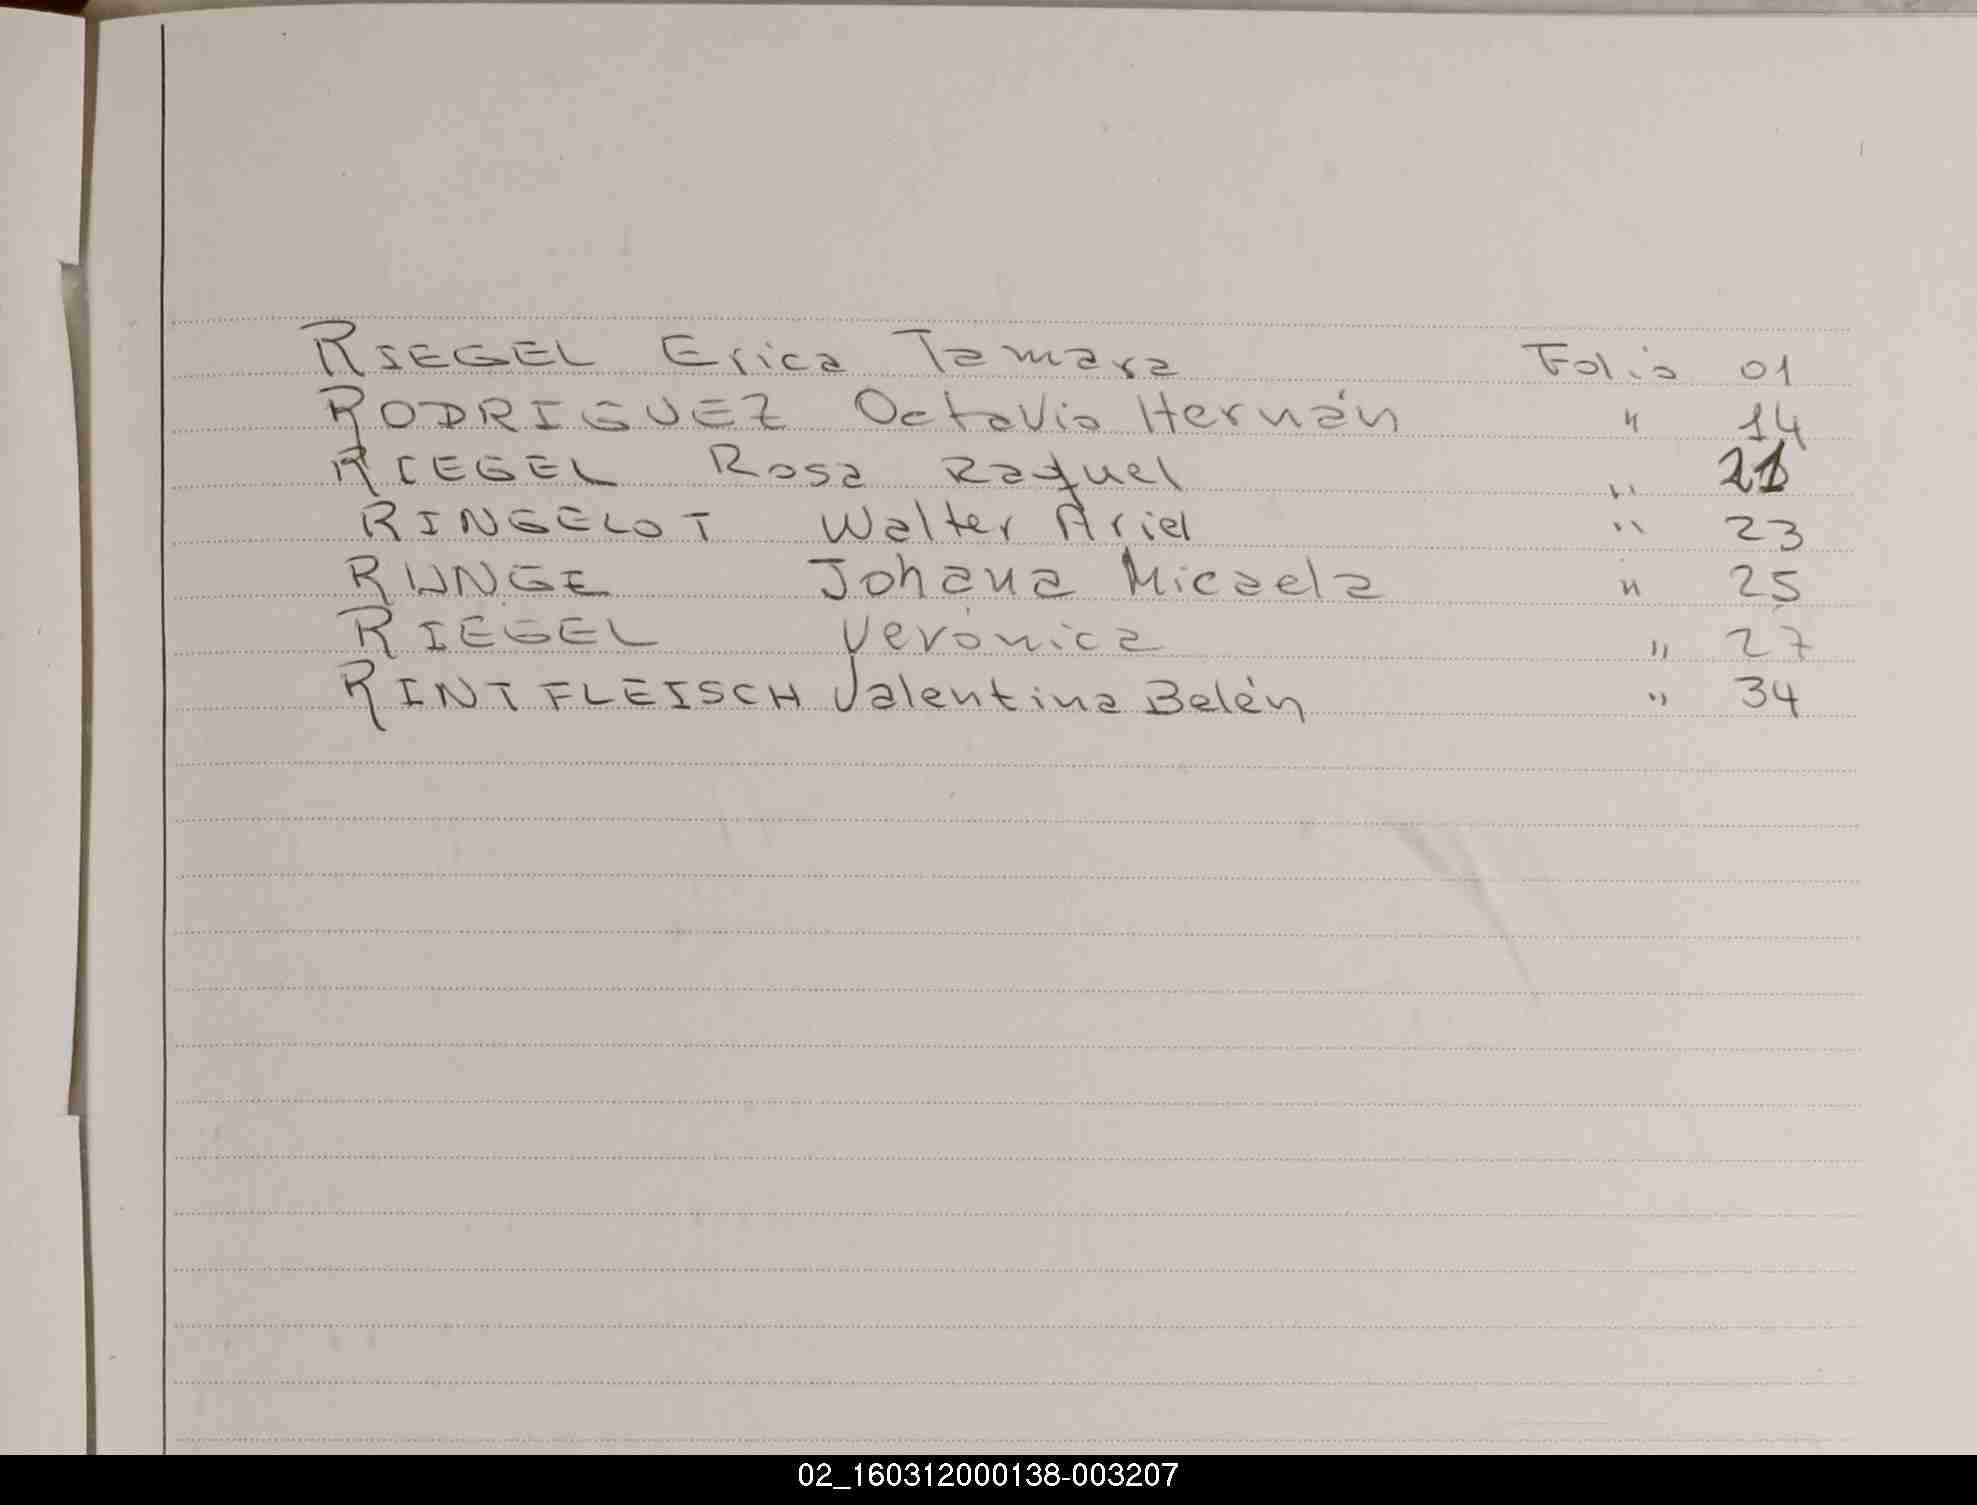 RIEGEL Erica Tamara Folio 01
RODRIGUEZ Octavio Hernán " 14
RIEGEL Rosa Raquel " 21
RINGELOT Walter Ariel " 23
RUNGE Johana Micaela " 25
RIEGEL Verónica " 27
RINTFLEISCH Valentina Belén " 34
02_160312000138-003207